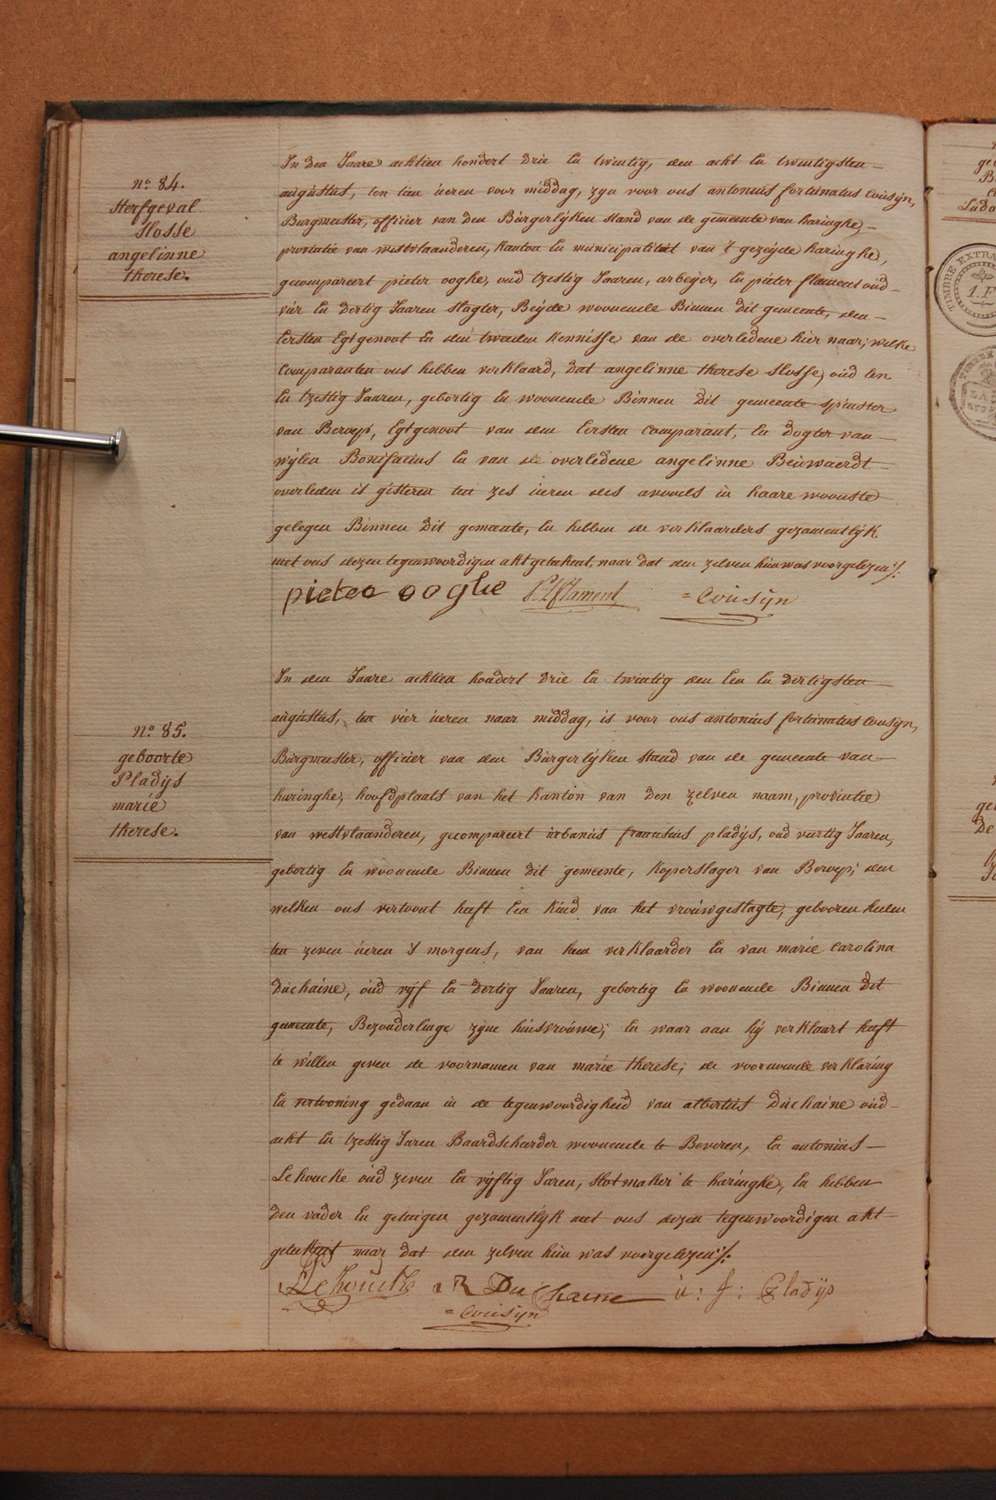 n.º 84.
Sterfgeval
Slosse
angelinne
therese.
In den Jaare achtien hondert drie en twintig, den acht en twintigsten
augustus, ten tien ueren voor middag, zyn voor ons antonius fortunatus Cousijn,
Burgmeester, officier van den Burgerlijken Stand van de gemeente van haringhe,
provintie van westvlaanderen, Kanton en municipaliteit van 't gezeyde haringhe,
gecompareert pieter ooghe, oud tzestig Jaaren, arbeÿer, en pieter flament oud
vier en dertig Jaaren slagter, Beÿde woonende Binnen dit gemeente, den
Eersten Egtgenoot en den tweeden Kennisse van de overledene hier naar; welke
Comparanten ons hebben verklaard, dat angelinne therese Slosse, oud een
en tzestig Jaaren, gebortig en woonende Binnen dit gemeente spinster
van Beroep, Egtgenoot van den Eersten Comparant, en dogter van
wijlen Bonifacius en van de overledene angelinne Beuwaerdt
overleden is gisteren ten zes ueren des avonds in haare woonste
gelegen Binnen dit gemeente, en hebben de verklaarders gezamentlijk
met ons dezen tegenwoordigen akt geteekent, naar dat den zelven hun was voorgelezen ./.
pieter ooghe P. Flament = Cousijn
n.º 85.
geboorte
Pladijs
marie
therese.
In den Jaare achtien hondert drie en twintig den Een en dertigsten
augustus, ten vier ueren naar middag, is voor ons antonius fortunatus Cousijn,
Burgmeester, officier van den Burgerlijken Stand van de gemeente van
haringhe, hoofdplaats van het Kanton van den zelven naam, provintie
van westvlaanderen, gecompareert urbanus franciscus pladijs, oud veertig Jaaren,
gebortig en woonende Binnen dit gemeente, Koperslager van Beroep; den
welken ons vertoont heeft Een Kind van het vrouwgeslagte, gebooren heden
ten zeven ueren 's morgens, van hem verklaarder en van marie Carolina
Duchaine, oud vijf en dertig Jaaren, gebortig en woonende Binnen dit
gemeente, Bezonderlinge zijne huisvrouwe; en waar aan hij verklaart heeft
te willen geven de voornamen van marie therese; de voornoemde verklaring
en vertooning gedaan in de tegenwoordigheid van albertus Duchaine oud
acht en tzestig Jaren Baardscharder woonende te Beveren, en antonius
Lehoucke oud zeven en vijftig Jaren, Slotmaker te haringhe, en hebben
den vader en getuigen gezamentlijk met ons dezen tegenwoordigen akt
geteekent naar dat den zelven hun was voorgelezen ./.
Lehoucke Duchaine u: f: Pladijs
= Cousijn
TIMBRE EXTRA
1.F